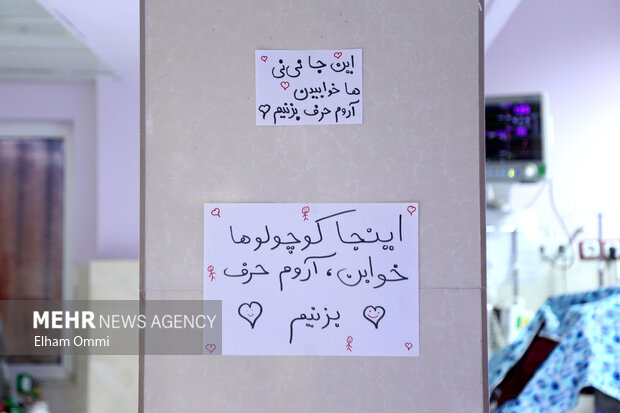 این جا نی‌نی
ها خوابیدن
آروم حرف بزنیم
اینجا کوچولوها
خوابن، آروم حرف
بزنیم
MEHR NEWS AGENCY
Elham Ommi